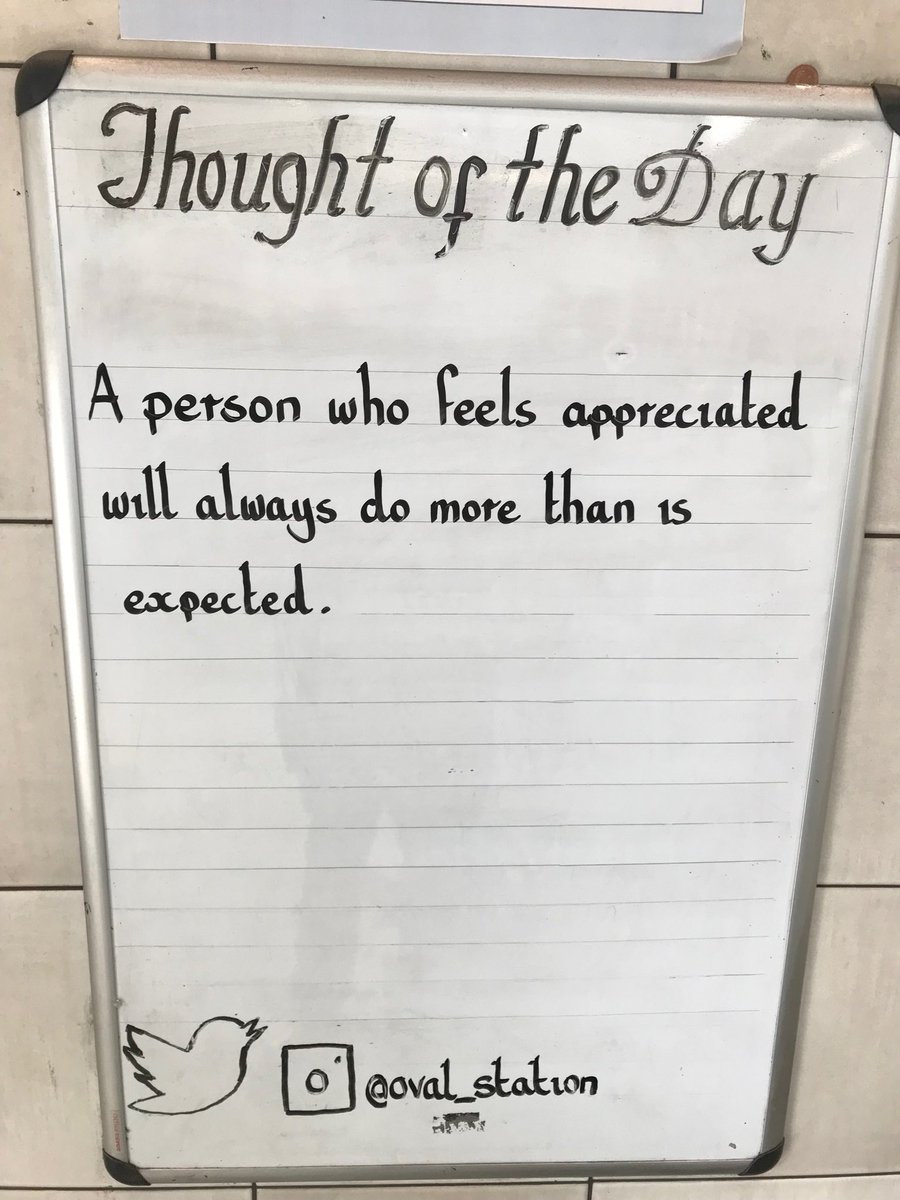 Thought of the Day
A person who feels appreciated
will always do more than is
expected.
@oval_station